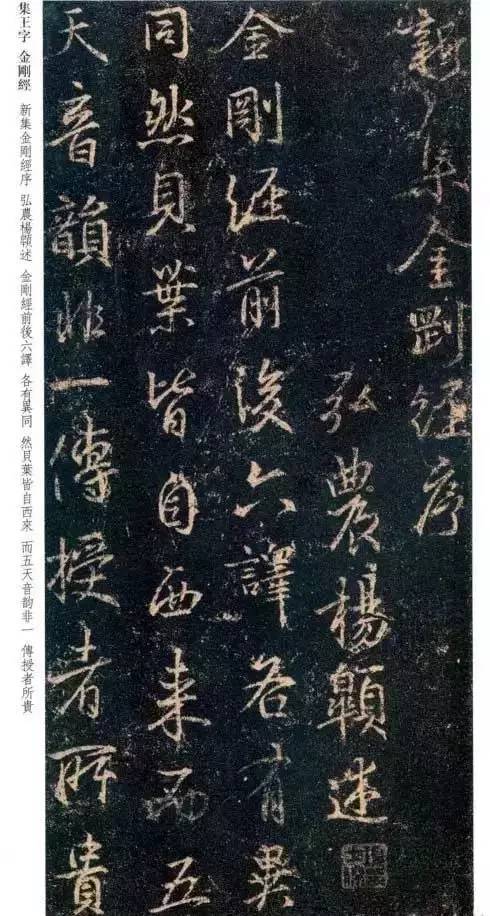 新集金剛經序
弘農楊述
金剛經前後六譯各有異
同然貝葉皆自西来而五
天音韻非一傳授者所貴
集王字 金剛經 新集金剛經序 弘農楊述 金剛經前後六譯 各有異同 然貝葉皆自西來 而五天音韵非一 傳授者所貴